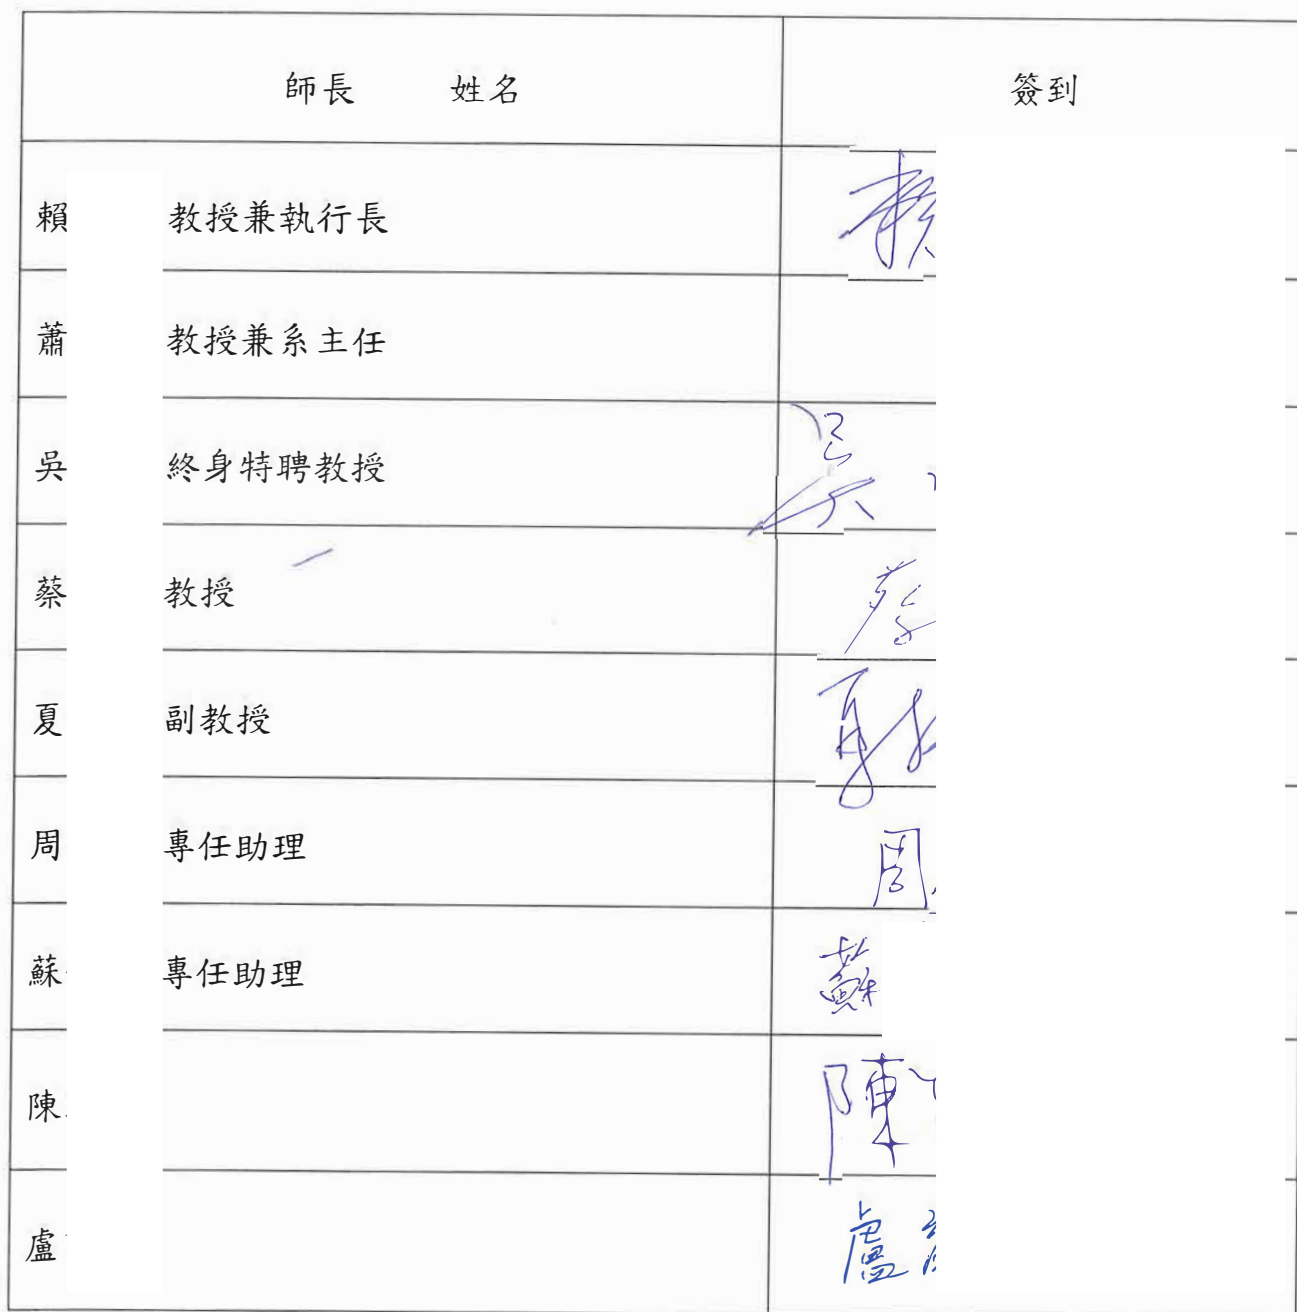 師長 姓名 簽到
賴 教授兼執行長 賴
蕭 教授兼系主任
吳 終身特聘教授 吳
蔡 教授 蔡
夏 副教授 夏
周 專任助理 周
蘇 專任助理 蘇
陳 陳
盧 盧